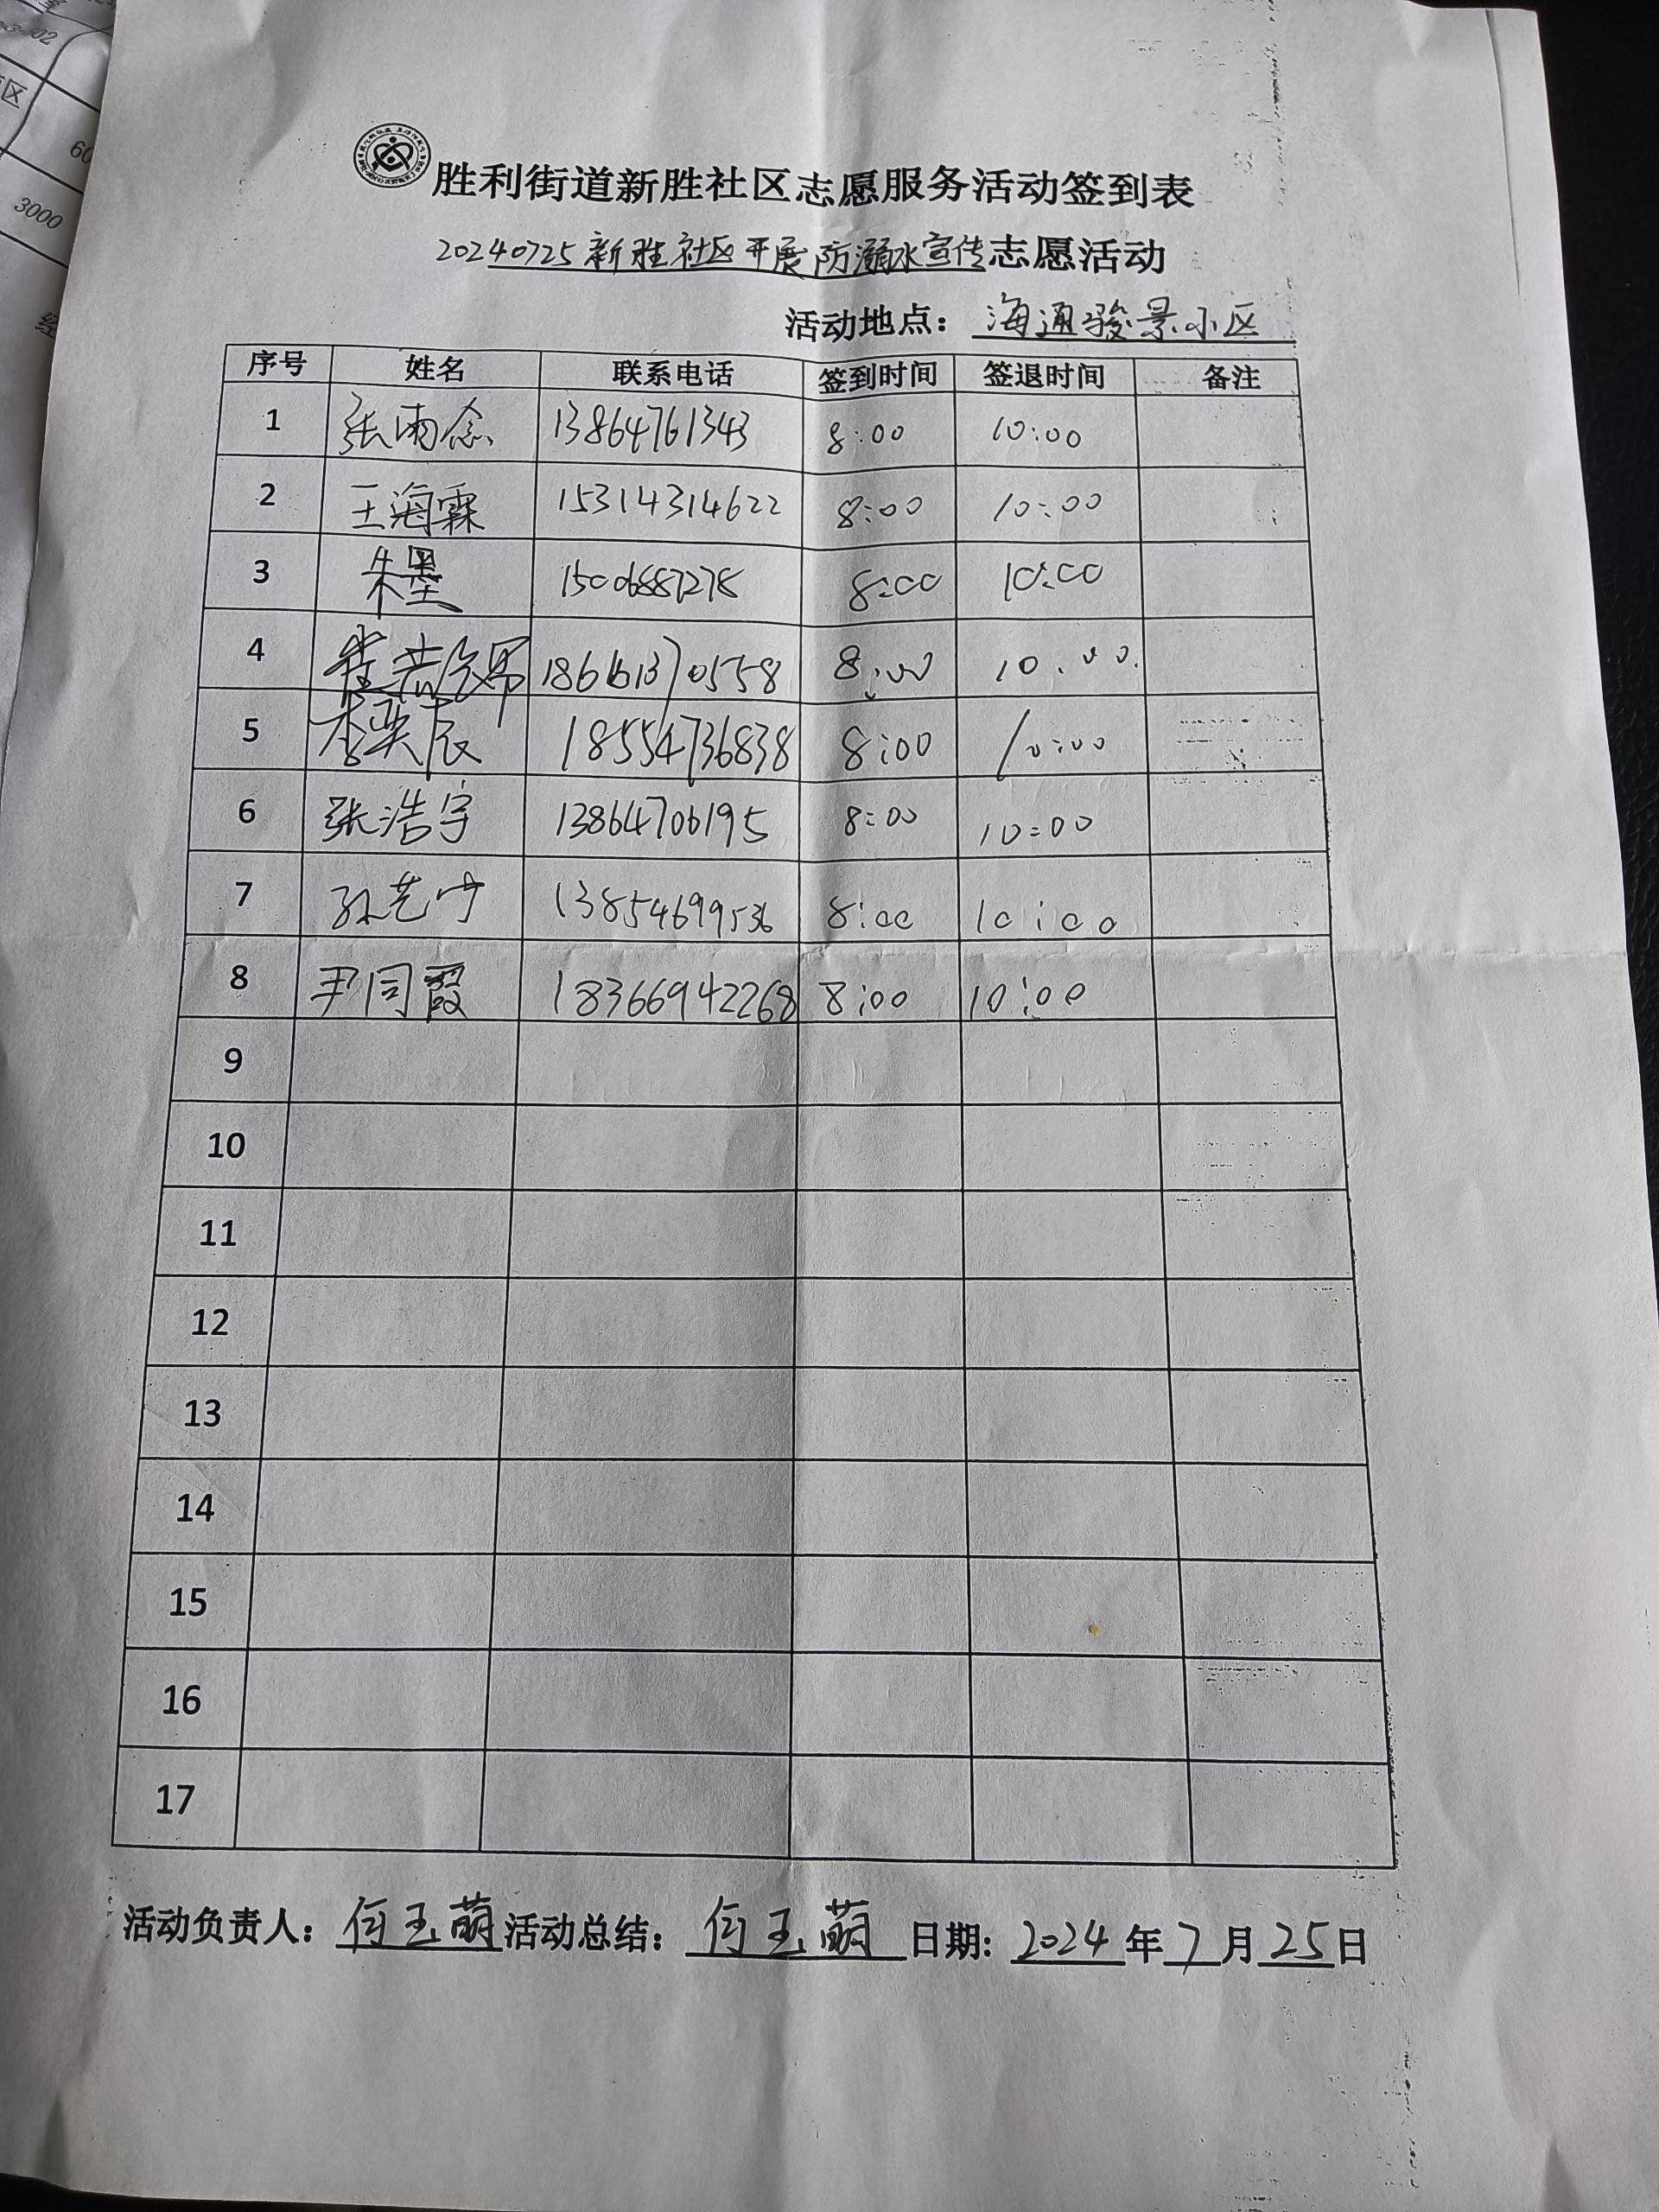 02
区
60
3000
经
胜利街道新胜社区志愿服务活动签到表
20240725新胜社区开展防溺水宣传志愿活动
活动地点：海通骏景小区
序号 姓名 联系电话 签到时间 签退时间 备注
1 张雨念 13864761343 8:00 10:00
2 王海霖 15314314622 8:00 10:00
3 朱墨 15006887278 8:00 10:00
4 8:00 10:00
5 李奕辰 18554736838 8:00 10:00
6 张浩宇 13864706195 8:00 10:00
7 孙艺宁 13854699536 8:00 10:00
8 尹同霞 18366942268 8:00 10:00
9
10
11
12
13
14
15
16
17
活动负责人：何玉萌 活动总结：何玉萌 日期：2024年7月25日